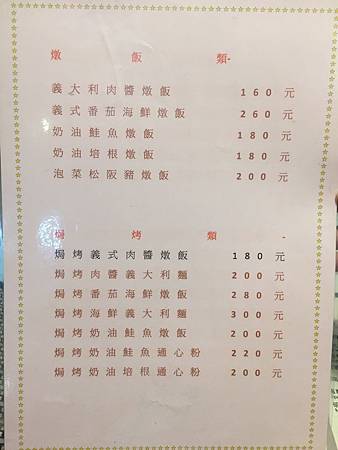 燉飯類-
義大利肉醬燉飯 160元
義式番茄海鮮燉飯 260元
奶油鮭魚燉飯 180元
奶油培根燉飯 180元
泡菜松阪豬燉飯 200元
焗烤類-
焗烤義式肉醬燉飯 180元
焗烤肉醬義大利麵 200元
焗烤番茄海鮮燉飯 280元
焗烤海鮮義大利麵 300元
焗烤奶油鮭魚燉飯 200元
焗烤奶油鮭魚通心粉 220元
焗烤奶油培根通心粉 200元